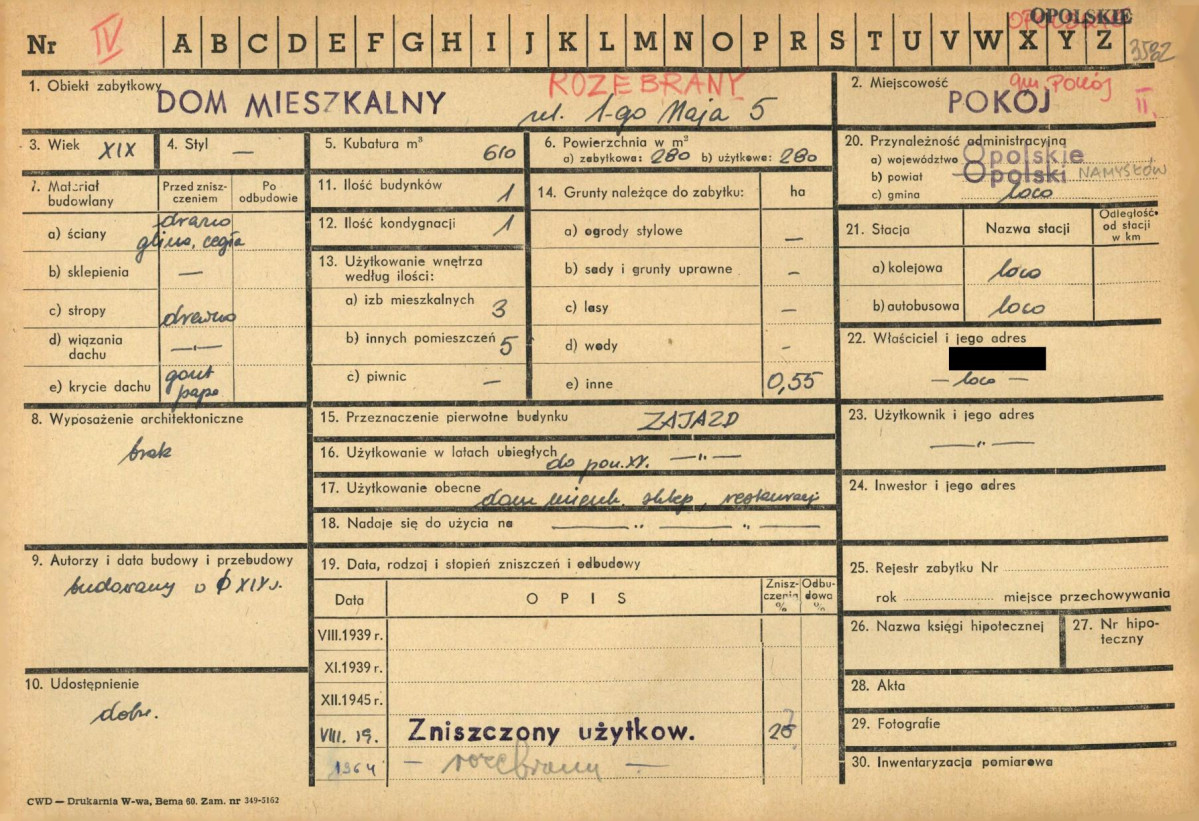 OPOLSKIE
Nr IV A B C D E F G H I J K L M N O P R S T U V W X Y Z 3532
1. Obiekt zabytkowy DOM MIESZKALNY
ROZEBRANY
ul. 1-go Maja 5
2. Miejscowość gm. Pokój
POKÓJ II.
3. Wiek XIX
4. Styl —
5. Kubatura m³ 610
6. Powierzchnia w m²
a) zabytkowa: 280 b) użytkowa: 280
20. Przynależność administracyjna
a) województwo Opolskie
b) powiat Opolski NAMYSŁÓW
c) gmina loco
7. Materiał budowlany
Przed zniszczeniem
Po odbudowie
a) ściany drzewo
glina, cegła
b) sklepienia —
c) stropy drewno
d) wiązania dachu —„—
e) krycie dachu gont
papa
11. Ilość budynków 1
12. Ilość kondygnacji 1
13. Użytkowanie wnętrza
według ilości:
a) izb mieszkalnych 3
b) innych pomieszczeń 5
c) piwnic —
14. Grunty należące do zabytku: ha
a) ogrody stylowe —
b) sady i grunty uprawne —
c) lasy —
d) wody —
e) inne 0,55
21. Stacja Nazwa stacji Odległość od stacji w km
a) kolejowa loco
b) autobusowa loco
22. Właściciel i jego adres
— loco —
8. Wyposażenie architektoniczne
brak
15. Przeznaczenie pierwotne budynku ZAJAZD
16. Użytkowanie w latach ubiegłych —„—
17. Użytkowanie obecne dom mieszk. sklep, restauracj.
18. Nadaje się do użycia na —— „ —— „ ——
23. Użytkownik i jego adres
—„—
24. Inwestor i jego adres
9. Autorzy i data budowy i przebudowy
budowany XIX w.
19. Data, rodzaj i stopień zniszczeń i odbudowy
Data OPIS Zniszczenia % Odbudowa %
VIII.1939 r.
XI.1939 r.
XII.1945 r.
VIII. 19. Zniszczony użytkow.
1964 — rozebrany —
25. Rejestr zabytku Nr
rok miejsce przechowywania
26. Nazwa księgi hipotecznej
27. Nr hipoteczny
10. Udostępnienie
dobre.
28. Akta
29. Fotografie
30. Inwentaryzacja pomiarowa
CWD — Drukarnia W-wa, Bema 60. Zam. nr 349-5162